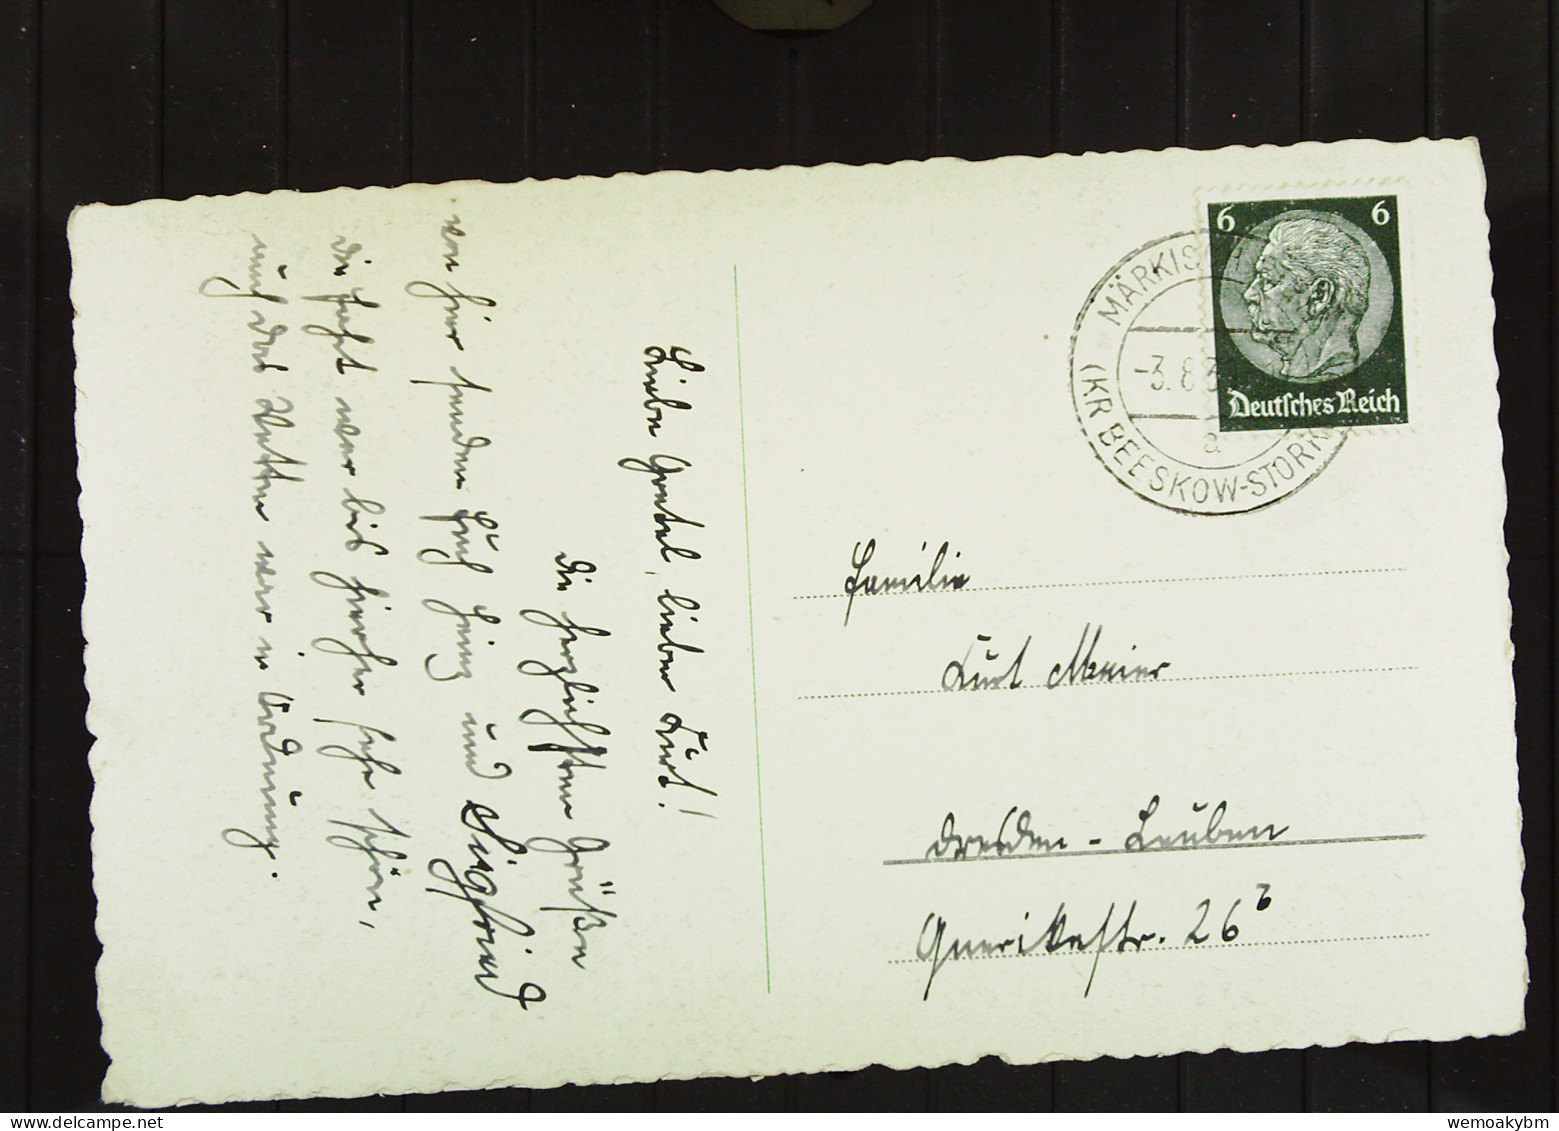 Liebe Gretel, lieber Kurt!
die herzlichsten Grüßen
von hier senden Euch Heinz und Siegfried
die Fahrt war bis hierher sehr schön,
auch das Wetter war in Ordnung.
6 6
Deutsches Reich
MÄRKISCH
-3.8.3
a
(KR BEESKOW-STORK
Familie
Kurt Meier
Dresden - Leuben
Guerikestr. 26 b
wemoakybm